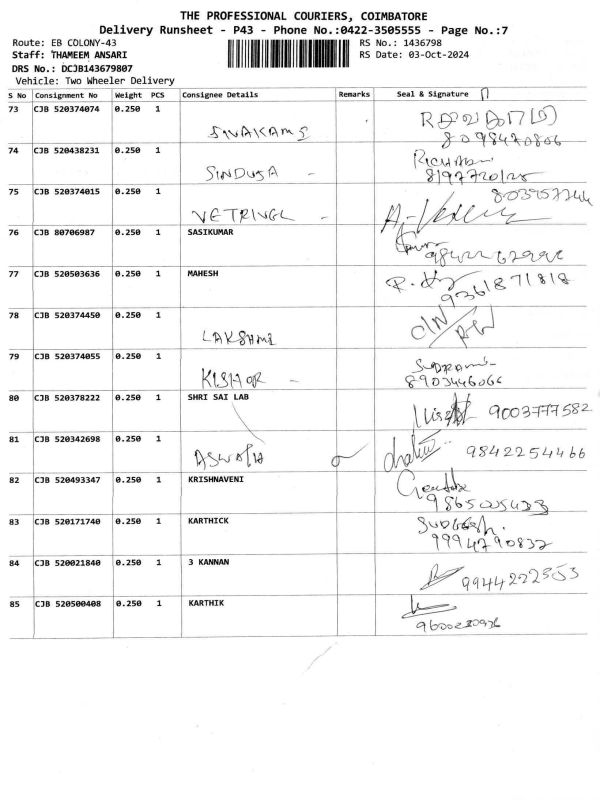 THE PROFESSIONAL COURIERS, COIMBATORE
Delivery Runsheet - P43 - Phone No.:0422-3505555 - Page No.:7
Route: EB COLONY-43 RS No.: 1436798
Staff: THAMEEM ANSARI RS Date: 03-Oct-2024
DRS No.: DCJB143679807
Vehicle: Two Wheeler Delivery
S No Consignment No Weight PCS Consignee Details Remarks Seal & Signature
73 CJB 520374074 0.250 1
SIVAKAMI 8098470806
74 CJB 520438231 0.250 1
SINDUJA -
75 CJB 520374015 0.250 1
VETRIVEL -
76 CJB 80706987 0.250 1 SASIKUMAR
77 CJB 520503636 0.250 1 MAHESH
9361871818
78 CJB 520374450 0.250 1
LAKSHMI
79 CJB 520374055 0.250 1
KISHOR - 8903446066
80 CJB 520378222 0.250 1 SHRI SAI LAB
9003777582
81 CJB 520342698 0.250 1
9842254466
82 CJB 520493347 0.250 1 KRISHNAVENI
83 CJB 520171740 0.250 1 KARTHICK
9994790832
84 CJB 520021840 0.250 1 3 KANNAN
9944222553
85 CJB 520500408 0.250 1 KARTHIK